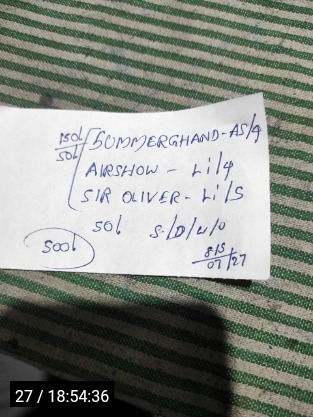 150l
50l
SUMMERGHAND-AS/9
AIRSHOW - Li/4
SIR OLIVER - Li/5
50l S/D/W/O
500l
8/5
07/27
27 / 18:54:36